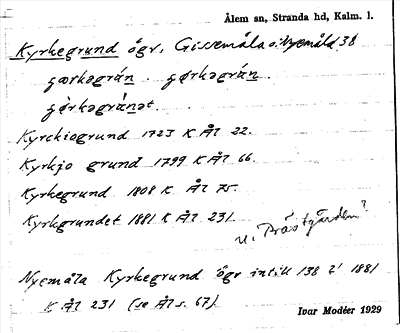 Ålem sn, Stranda hd, Kalm. l.
Kyrkegrund ögr. Gissemåla o. Nyemåla 38
çørkəgrún
çørkəgrúnət.
Kyrckiogrund 1723 K Ål 22.
Kyrkjo grund 1799 K Ål 66.
Kyrkegrund 1808 K Ål 75.
Kyrkgrundet 1881 K Ål 231.
u. Prästgården?
Nyemåla Kyrkegrund ögr intill 138 i 1881
K Ål 231 (se Ål s. 67).
Ivar Modéer 1929